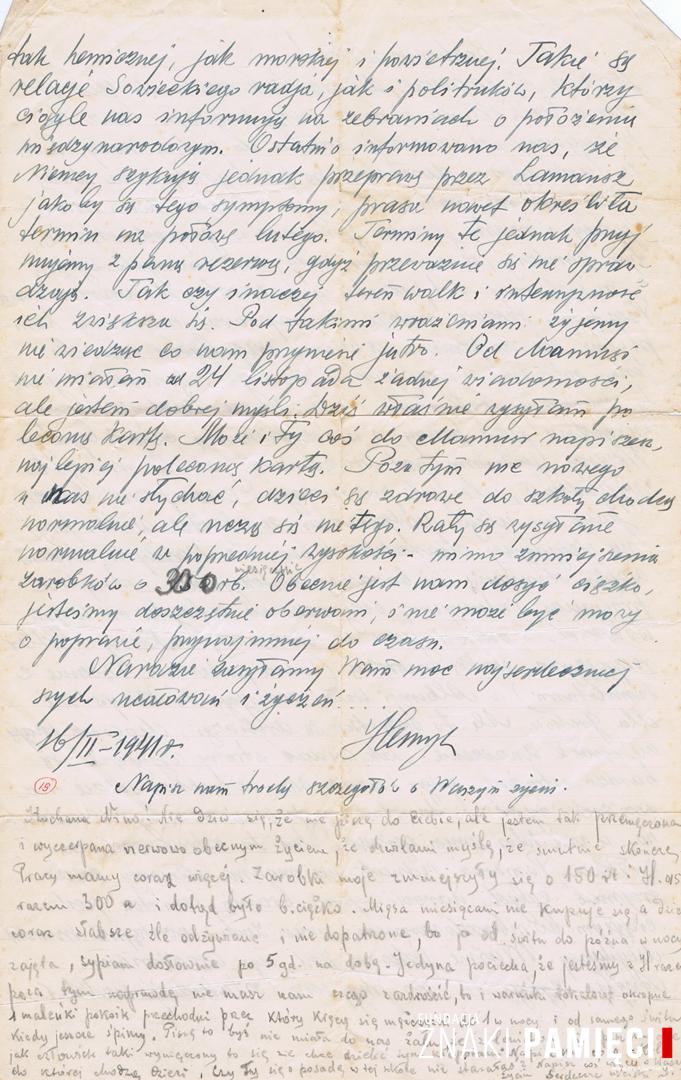 tak chemicznej, jak morskiej i powietrznej. Takie są
relacje Sowieckiego radja, jak i politruków, którzy
ciągle nas informują na zebraniach o położeniu
międzynarodowym. Ostatnio informowano nas, że
Niemcy szykują jednak przeprawę przez Lamansz
jakoby są tego symptomy, prasa nawet określiła
termin na połowę lutego. Terminy te jednak przyj
mujemy z pewną rezerwą, gdyż przeważnie się nie spraw
dzają. Tak czy inaczej teren walk i intensywność
ich zwiększa się. Pod takimi wrażeniami żyjemy
nie wiedząc co nam przyniesie jutro. Od Mamusi
nie miałem od 24 listopada żadnej wiadomości,
ale jestem dobrej myśli. Dziś właśnie wysyłam po
leconą kartę. Może i Ty coś do Mamusi napiszesz,
najlepiej poleconą kartę. Poza tym nic nowego
u nas nie słychać, dzieci są zdrowe do szkoły chodzą
normalnie, ale uczą się nie tęgo. Raty są wysyłane
normalnie w poprzedniej wysokości - mimo zmniejszenia
zarobków o 300 rb. miesięcznie Obecnie jest nam dosyć ciężko,
jesteśmy doszczętnie oberwani, i nie może być mowy
o poprawie, przynajmniej do czasu.
Narazie zasyłamy Wam moc najserdeczniej
szych ucałowań i życzeń . . . .
16/II-1941r. Henryk
(19) Napisz nam trochę szczegółów o Waszym życiu.
Kochana Nino. Nie dziw się, że nie piszę do Ciebie, ale jestem tak przemęczona
i wyczerpana nerwowo obecnym życiem, że chwilami myślę, że smutnie skończę
Pracy mamy coraz więcej. Zarobki moje zmniejszyły się o 150 i H. o 150
razem 300 a i dotąd było b. ciężko. Mięsa miesiącami nie kupuje się a dzieci
coraz słabsze źle odżywiane i nie dopatrzone, bo ja od świtu do późna w nocy
zajęta, sypiam dosłownie po 5 gd. na dobę. Jedyna pociecha, że jesteśmy z H razem
poza tym naprawdę nie masz nam czego zazdrościć, bo i warunki lokalowe okropne
maleńki pokoik przechodni przez który kręcą się w nocy i od samego świtu
kiedy jeszcze śpimy. Piszę to byś nie miała do nas żalu
jak człowiek taki wymęczony to się nie chce
do której chodzą dzieci, czy Ty się o posadę w tej szkole nie starałaś? Napisz coś
FUNDACJA
ZNAKI PAMIĘCI